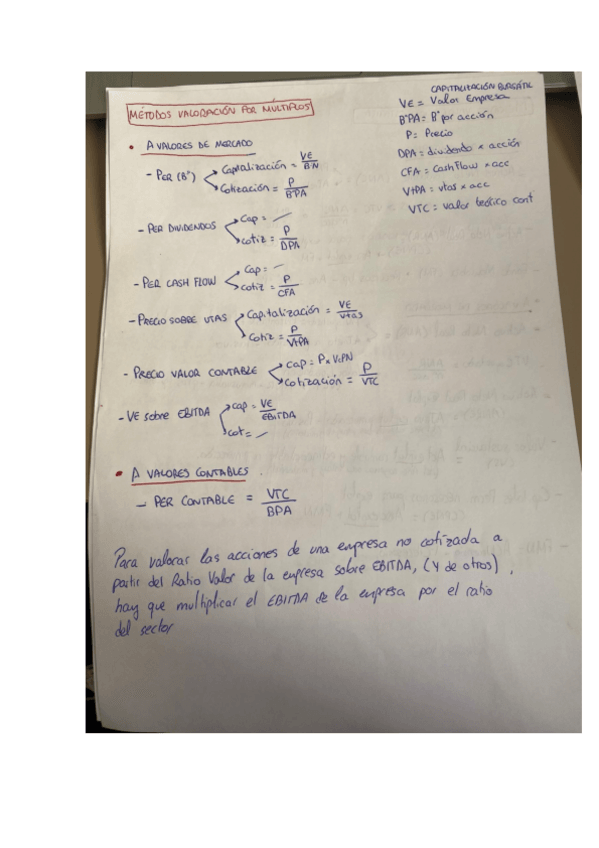 MÉTODOS VALORACIÓN POR MÚLTIPLOS
CAPITALIZACIÓN BURSÁTIL
VE = Valor Empresa
BºPA = Bº por acción
P = Precio
DPA = dividendo x acción
CFA = Cash Flow x acc
VtPA = vtas x acc
VTC = valor teórico cont
• A VALORES DE MERCADO
- PER (Bº) Capitalización = VE / BN
Cotización = P / BºPA
- PER DIVIDENDOS Cap = —
cotiz = P / DPA
- PER CASH FLOW Cap = —
cotiz = P / CFA
- PRECIO SOBRE VTAS Capitalización = VE / Vtas
Cotiz = P / VtPA
- PRECIO VALOR CONTABLE cap = P x VcPN
Cotización = P / VTC
- VE sobre EBITDA cap = VE / EBITDA
cot = —
• A VALORES CONTABLES
- PER CONTABLE = VTC / BPA
Para valorar las acciones de una empresa no cotizada a
partir del Ratio Valor de la empresa sobre EBITDA, (y de otros),
hay que multiplicar el EBITDA de la empresa por el ratio
del sector